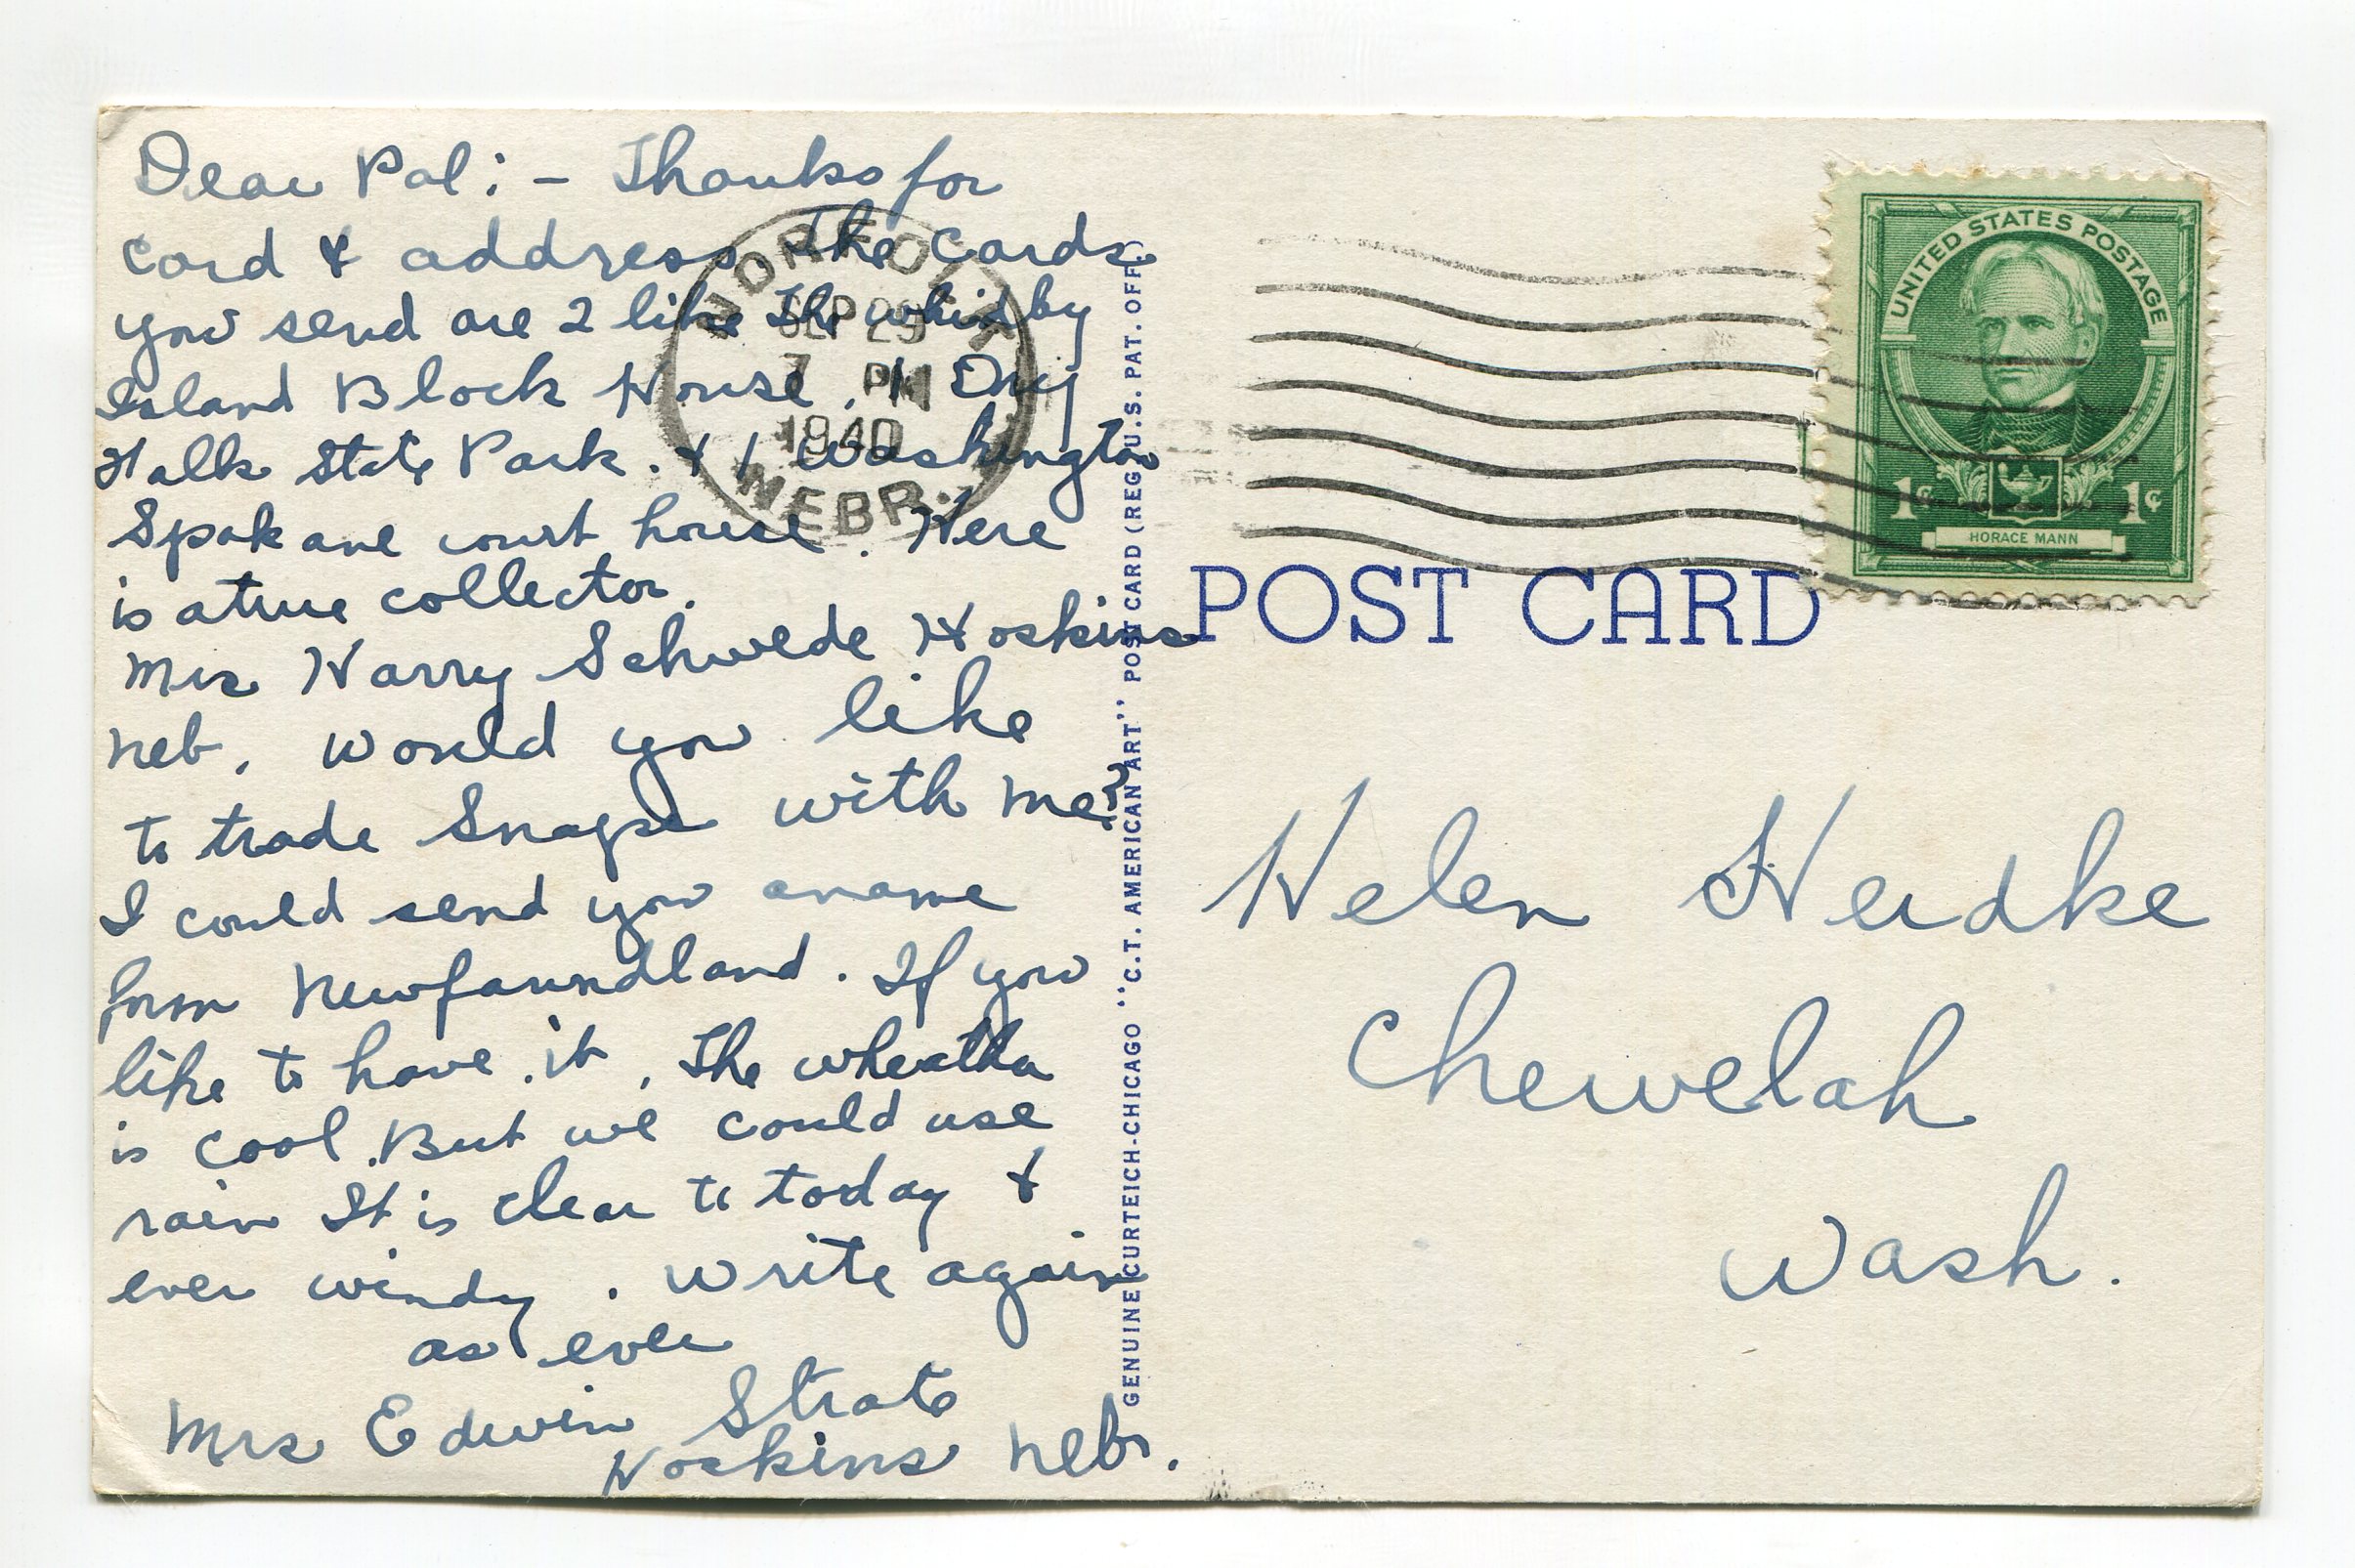 Dear Pal: – Thanks for
card & address. The cards
you send are 2 like the whidby
Island Block House, 1 Dry
Falls State Park. & 1 Washington
Spokane court house. Here
is a true collector.
Mrs Harry Schwede Hoskins
Neb. Would you like
to trade Snaps with me?
I could send you a name
form Newfaundland. If you
like to have it. The wheatha
is cool. But we could use
rain It is clear to today &
ever windy. Write again
as ever
Mrs Edwin Strate
Hoskins Nebr.
NORFOLK
SEP 29
7 PM
1940
NEBR.
GENUINE CURTEICH-CHICAGO "C.T. AMERICAN ART" POST CARD (REG. U.S. PAT. OFF.)
UNITED STATES POSTAGE
1¢ 1¢
HORACE MANN
POST CARD
Helen Heidke
Chewelah
Wash.